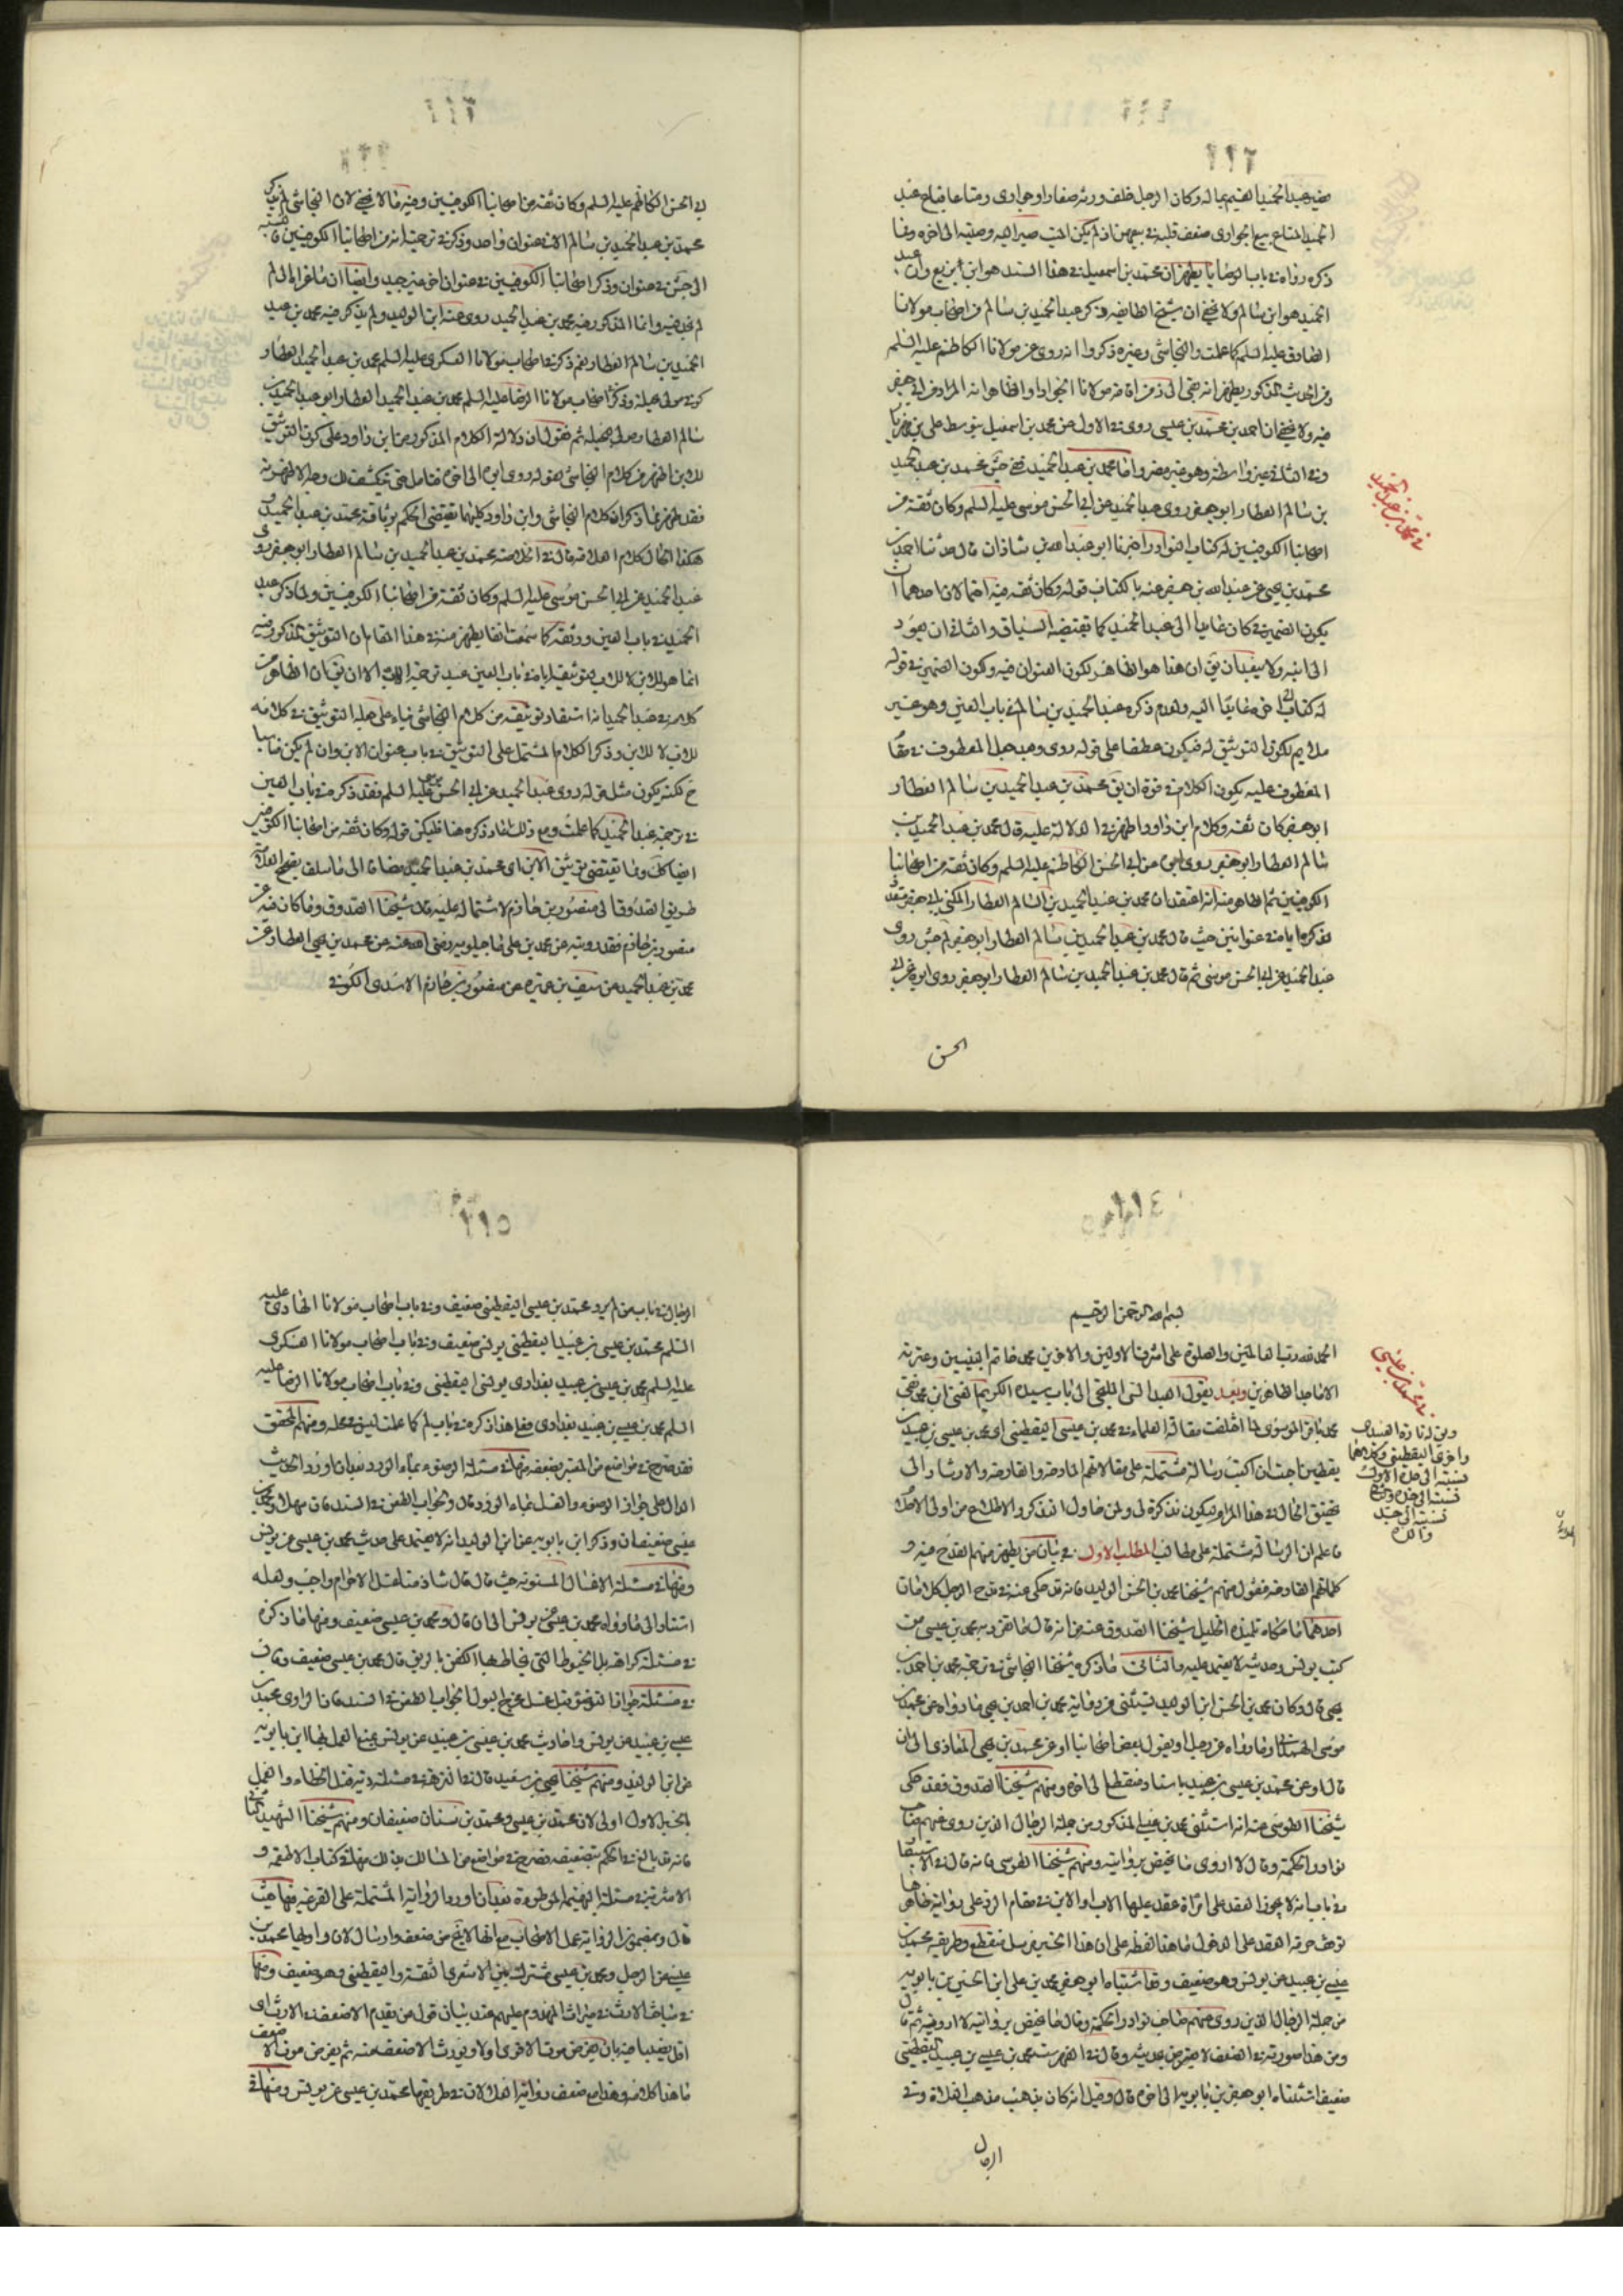 ٢١٢
فيه عبد الحميد القيم بماله وكان الرجل خلف ورثة صغارا وجوارى ومتاعا فباع عبد
الحميد المتاع بيع الجوارى ضعف قلبه في بيعهن اذ لم يكن الميت صير اليه وصيته الى اخره وما
ذكره رواه في باب الوصايا يظهر ان محمد بن اسمعيل في هذا السند هو ابن بزيع وان عبد
الحميد هو ابن سالم ولا يخفى ان شيخ الطايفة ذكر عبد الحميد بن سالم من اصحاب مولانا
الصادق عليه السلم كما علمت والنجاشى وغيره ذكروا انه روى عن مولانا الكاظم عليه السلم
ومن الحديث المذكور يظهر انه بقى الى زمن امامة مولانا الجواد اذ الظاهر انه المراد من ابى جعفر
فيه ولا يخفى ان احمد بن محمد بن عيسى روى في الاول عن محمد بن اسمعيل بتوسط على بن مهزيار
وفي الثانى بغير واسطة وهو غير مضر واما محمد بن عبد الحميد ففى جش محمد بن عبد الحميد
بن سالم العطار ابو جعفر روى عبد الحميد عن ابى الحسن موسى عليه السلم وكان ثقة من
اصحابنا الكوفيين له كتاب النوادر اخبرنا ابو عبد الله بن شاذان قال حدثنا احمد بن
محمد بن يحيى عن عبد الله بن جعفر عنه بالكتاب قوله وكان ثقة فيه احتمالان احدهما ان
يكون الضمير في كان عايدا الى عبد الحميد كما تقتضيه السياق والثانى ان يعود
الى ابنه ولا يبعد ان يق ان هذا هو الظاهر لكون العنوان فيه وكون الضمير في قوله
له كتاب الخ عايدا اليه ولعدم ذكره عبد الحميد بن سالم في باب العين وهو غير
ملايم لكون التوثيق له فيكون عطفا على قوله روى وبعد جعل المعطوف في مقام
المعطوف عليه يكون الكلام في قوة ان يق محمد بن عبد الحميد بن سالم العطار
ابو جعفر كان ثقة وكلام ابن داود اظهر في الدلالة عليه قال محمد بن عبد الحميد بن
سالم العطار ابو جعفر روى ابوه عن ابى الحسن الكاظم عليه السلم وكان ثقة من اصحابنا
الكوفيين ثم الظاهر منه انه اعتقد ان محمد بن عبد الحميد بن سالم العطار المكنى بابى جعفر متعدد
لذكره اياه في عنوانين حيث قال محمد بن عبد الحميد بن سالم العطار ابو جعفر لم جش روى
عبد الحميد عن ابى الحسن موسى ثم قال محمد بن عبد الحميد بن سالم العطار ابو جعفر روى ابوه عن ابى
الحسن
في محمد بن عبد الحميد
ابى الحسن الكاظم عليه السلم وكان ثقة من اصحابنا الكوفيين وفيه ما لا يخفى لان النجاشى لم يذكر
محمد بن عبد الحميد بن سالم الا في عنوان واحد وذكر في ترجمته انه من اصحابنا الكوفيين فنسبة
الى جش في عنوان وذكر اصحابنا الكوفيين في عنوان اخر غير جيد وايضا ان ما عزاه الى لم
لم نجد فيه وانما المذكور فيه محمد بن عبد الحميد روى عنه ابن الوليد ولم يذكر فيه محمد بن عبد
الحميد بن سالم العطار نعم ذكر في اصحاب مولانا العسكرى عليه السلم محمد بن عبد الحميد العطار
كوفى مولى بجيلة وذكر في اصحاب مولانا الرضا عليه السلم محمد بن عبد الحميد العطار ابوه عبد الحميد بن
سالم العطار مولى لبجيلة ثم نقول ان دلالة الكلام المذكور من ابن داود على كون التوثيق
للابن اظهر من كلام النجاشى لقوله روى ابوه الى اخره فتامل حتى ينكشف لك وجه الاظهرية
فقد ظهر مما ذكر ان كلام النجاشى وابن داود كليهما يقتضى الحكم بوثاقة محمد بن عبد الحميد و
هكذا الحال كلام العلامة قال في الخلاصة محمد بن عبد الحميد بن سالم العطار ابو جعفر روى
عبد الحميد عن ابى الحسن موسى عليه السلم وكان ثقة من اصحابنا الكوفيين ولما ذكر عبد
الحميد في باب العين ووثقه كما سمعت انفا يظهر منه في هذا المقام ان التوثيق المذكور فيه
انما هو للابن لا للاب
كلامه في عبد الحميد انه استفاد توثيقه من كلام النجاشى بناء على حمله التوثيق في كلامه
للاب لا للابن وذكر الكلام المشتمل على التوثيق في باب عنوان الابن وان لم يكن مناسبا
ح لكنه يكون مثل قوله روى عبد الحميد عن ابى الحسن موسى عليه السلم فقد ذكره في باب العين
في ترجمة عبد الحميد كما علمت ومع ذلك اعاد ذكره هنا فليكن قوله وكان ثقة من اصحابنا الكوفيين
ايضا كك ومما يقتضى توثيق الابن اى محمد بن عبد الحميد مضافا الى ما سلف تصحيح العلامة
طريق الصدوق الى منصور بن حازم لاشتماله عليه قال شيخنا الصدوق وما كان فيه عن
منصور بن حازم فقد رويته عن محمد بن على ماجيلويه رضى الله عنه عن محمد بن يحيى العطار عن
محمد بن عبد الحميد عن سيف بن عميرة عن منصور بن حازم الاسدى الكوفى
٢١٤
بسم الله الرحمن الرحيم
الحمد لله رب العالمين والصلوة على اشرف الاولين والاخرين محمد خاتم النبيين وعترته
الاماجد الطاهرين وبعد يقول العبد الملتجى الى باب سيده الكريم ابن محمد نقى
محمد باقر الموسوى لما اختلفت مقالة العلماء في محمد بن عيسى اليقطينى اى محمد بن عيسى بن عبيد بن
يقطين احببت ان اكتب رسالة مشتملة على مقالاتهم المادحة والقادحة والارشاد الى
تحقيق الحال في هذا المرام ليكون تذكرة لى ولمن حاول التذكر والاطلاع من اولى الافهام
فاعلم ان الرسالة مشتملة على مطالب المطلب الاول في بيان من يظهر منهم القدح فيه و
كلماتهم القادحة فنقول منهم شيخنا محمد بن الحسن الوليد فانه قد حكى عنه في قدح الرجل كلامان
احدهما ما حكاه تلميذه الجليل شيخنا الصدوق عنه من انه قال ما تفرد به محمد بن عيسى من
كتب يونس وحديثه لا يعتمد عليه والثانى ما ذكره شيخنا النجاشى في ترجمة محمد بن احمد بن
يحيى قال وكان محمد بن الحسن ابن الوليد يستثنى من رواية محمد بن احمد بن يحيى ما رواه عن محمد بن
موسى الهمدانى وما رواه عن رجل او يقول بعض اصحابنا او عن محمد بن يحيى المعاذى الى ان
قال او عن محمد بن عيسى بن عبيد باسناد منقطع الى اخره ومنهم شيخنا الصدوق فقد حكى
شيخنا الطوسى عنه انه استثنى محمد بن عيسى المذكور من جملة الرجال الذين روى عنهم صاحب
نوادر الحكمة وقال لا اروى ما يختص بروايته ومنهم شيخنا الطوسى فانه قال في الاستبصار
في باب انه لا يجوز العقد على امراة عقد عليها الاب او الابن في مقام الرد على رواية ظاهرها
توقف حرمة العقد على الدخول ما هذا لفظه على ان هذا الخبر مرسل منقطع وطريقه محمد بن
عيسى بن عبيد عن يونس وهو ضعيف وقد استثناه ابو جعفر محمد بن على ابن الحسين بن بابويه
من جملة الرجال الذين روى عنهم صاحب نوادر الحكمة وقال ما يختص بروايته لا ارويه ثم قال
ومن هذا صورته في الضعف لا يعترض بحديثه وقال في الفهرست محمد بن عيسى بن عبيد اليقطينى
ضعيف استثناه ابو جعفر بن بابويه الى اخره قال وقيل انه كان يذهب مذهب الغلاة وفي
الرجال
في محمد بن عيسى
٢١٥
الرجال في باب من لم يرو محمد بن عيسى اليقطينى ضعيف وفي باب اصحاب مولانا الهادى عليه
السلم محمد بن عيسى بن عبيد اليقطينى يونسى ضعيف وفي باب اصحاب مولانا العسكرى
عليه السلم محمد بن عيسى بن عبيد بغدادى يونسى اليقطينى وفي باب اصحاب مولانا الرضا عليه
السلم محمد بن عيسى بن عبيد بغدادى فما هنا ذكره في باب لم كما علمت ليس في محله ومنهم المحقق
فقد صرح في مواضع من المعتبر بضعفه منها في مسئلة الوضوء بماء الورد فبعد ان اورد الحديث
الدال على جواز الوضوء والغسل بماء الورد قال والجواب الطعن في السند فان سهلا ومحمد بن
عيسى ضعيفان وذكر ابن بابويه عن ابن الوليد انه لا يعتمد على حديث محمد بن عيسى عن يونس
ومنها في مسئلة الاغسال المسنونة حيث قال قال شاذ منا غسل الاحرام واجب ولعله
استنادا الى ما رواه محمد بن عيسى عن يونس الى ان قال ومحمد بن عيسى ضعيف ومنها ما ذكره
في مسئلة كراهة بل الخيوط التى يخاط بها الكفن بالريق قال محمد بن عيسى ضعيف ومنها
في مسئلة جواز التوضؤ قبل غسل مخرج البول الجواب الطعن في السند فان الراوى محمد بن
عيسى بن عبيد عن يونس واحاديث محمد بن عيسى بن عبيد عن يونس يمنع العمل بها ابن بابويه
عن ابن الوليد ومنهم شيخنا يحيى بن سعيد قال في النزهة في مسئلة دية قتل الخطاء والعمل
بالخبر الاول اولى لان محمد بن عيسى ومحمد بن سنان ضعيفان ومنهم شيخنا الشهيد الثانى
فانه قد بالغ في الحكم بتضعيفه فصرح في مواضع من المسالك بذلك منها في كتاب الاطعمة و
الاشربة في مسئلة البهيمة الموطوءة فبعد ان اورد الرواية المشتملة على القرعة فيها حيث
قال وبمضمون الرواية عمل الاصحاب مع انها لا تخ من ضعف وارسال لان راويها محمد بن
عيسى عن الرجل ومحمد بن عيسى مشترك بين الاشعرى الثقة واليقطينى وهو ضعيف ومنها
في مباحث الارث في ميراث المهدوم عليهم عند بيان قول من يقدم الاضعف في الارث اى
اقل نصيبا فيه بان يفرض موت الاقوى اولا ويورث الاضعف منه ثم يفرض موت الاضعف
ما هذا كلامه وهذا مع ضعف رواية الدلالة في طريقها محمد بن عيسى عن يونس ومنها في